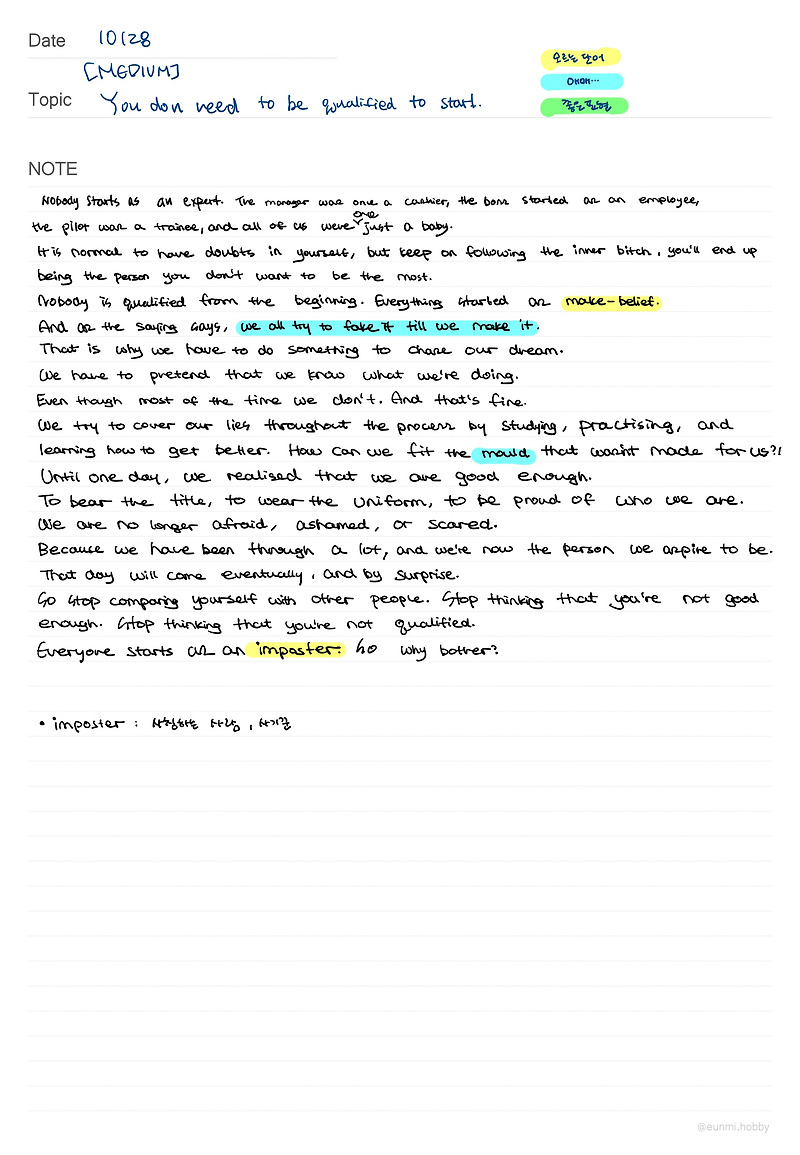 Date 10/28
[MEDIUM]
Topic You don need to be qualified to start.
모르는 단어
애매…
좋은 표현
NOTE
Nobody starts as an expert. The manager was one a cashier, the boss started as an employee,
the pilot was a trainee, and all of us were one just a baby.
It is normal to have doubts in yourself, but keep on following the inner bitch, you'll end up
being the person you don't want to be the most.
Nobody is qualified from the beginning. Everything started as make-belief.
And as the saying says, we all try to fake it till we make it.
That is why we have to do something to chase our dream.
We have to pretend that we know what we're doing.
Even though most of the time we don't. And that's fine.
We try to cover our lies throughout the process by studying, practising, and
learning how to get better. How can we fit the mould that wasn't made for us?!
Until one day, we realised that we are good enough.
To bear the title, to wear the uniform, to be proud of who we are.
We are no longer afraid, ashamed, or scared.
Because we have been through a lot, and we're now the person we aspire to be.
That day will come eventually, and by surprise.
So stop comparing yourself with other people. Stop thinking that you're not good
enough. Stop thinking that you're not qualified.
Everyone starts as an imposter. So why bother?
• imposter : 사칭하는 사람, 사기꾼
@eunmi.hobby